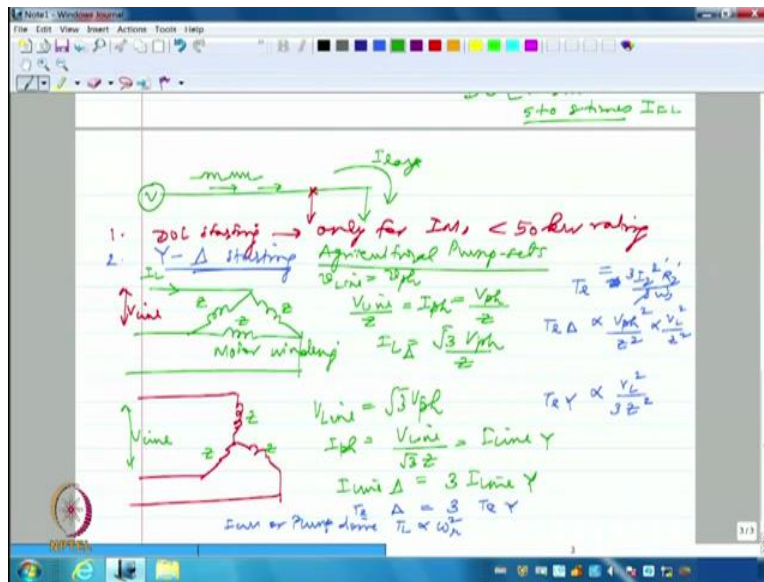 Note1 - Windows Journal
File Edit View Insert Actions Tools Help
5 to 8 times IFL
V
I large
1. DOL starting → only for IM, < 50 kW rating
2. Y - Δ starting Agricultural Pump-sets
IL
Vline
Z Z
Z
Motor winding
VLine = Vph
VLine / Z = Iph = Vph / Z
ILΔ = √3 Vph / Z
Te = 3 I2'² R2' / s ωs
Te Δ ∝ Vph² / Z² ∝ VL² / Z²
Te Y ∝ VL² / 3 Z²
Vline
Z
Z Z
VLine = √3 Vph
Iph = VLine / √3 Z = ILine Y
ILine Δ = 3 ILine Y
Te Δ = 3 Te Y
Fan or Pump drive TL ∝ ωr²
NPTEL
3/3
3